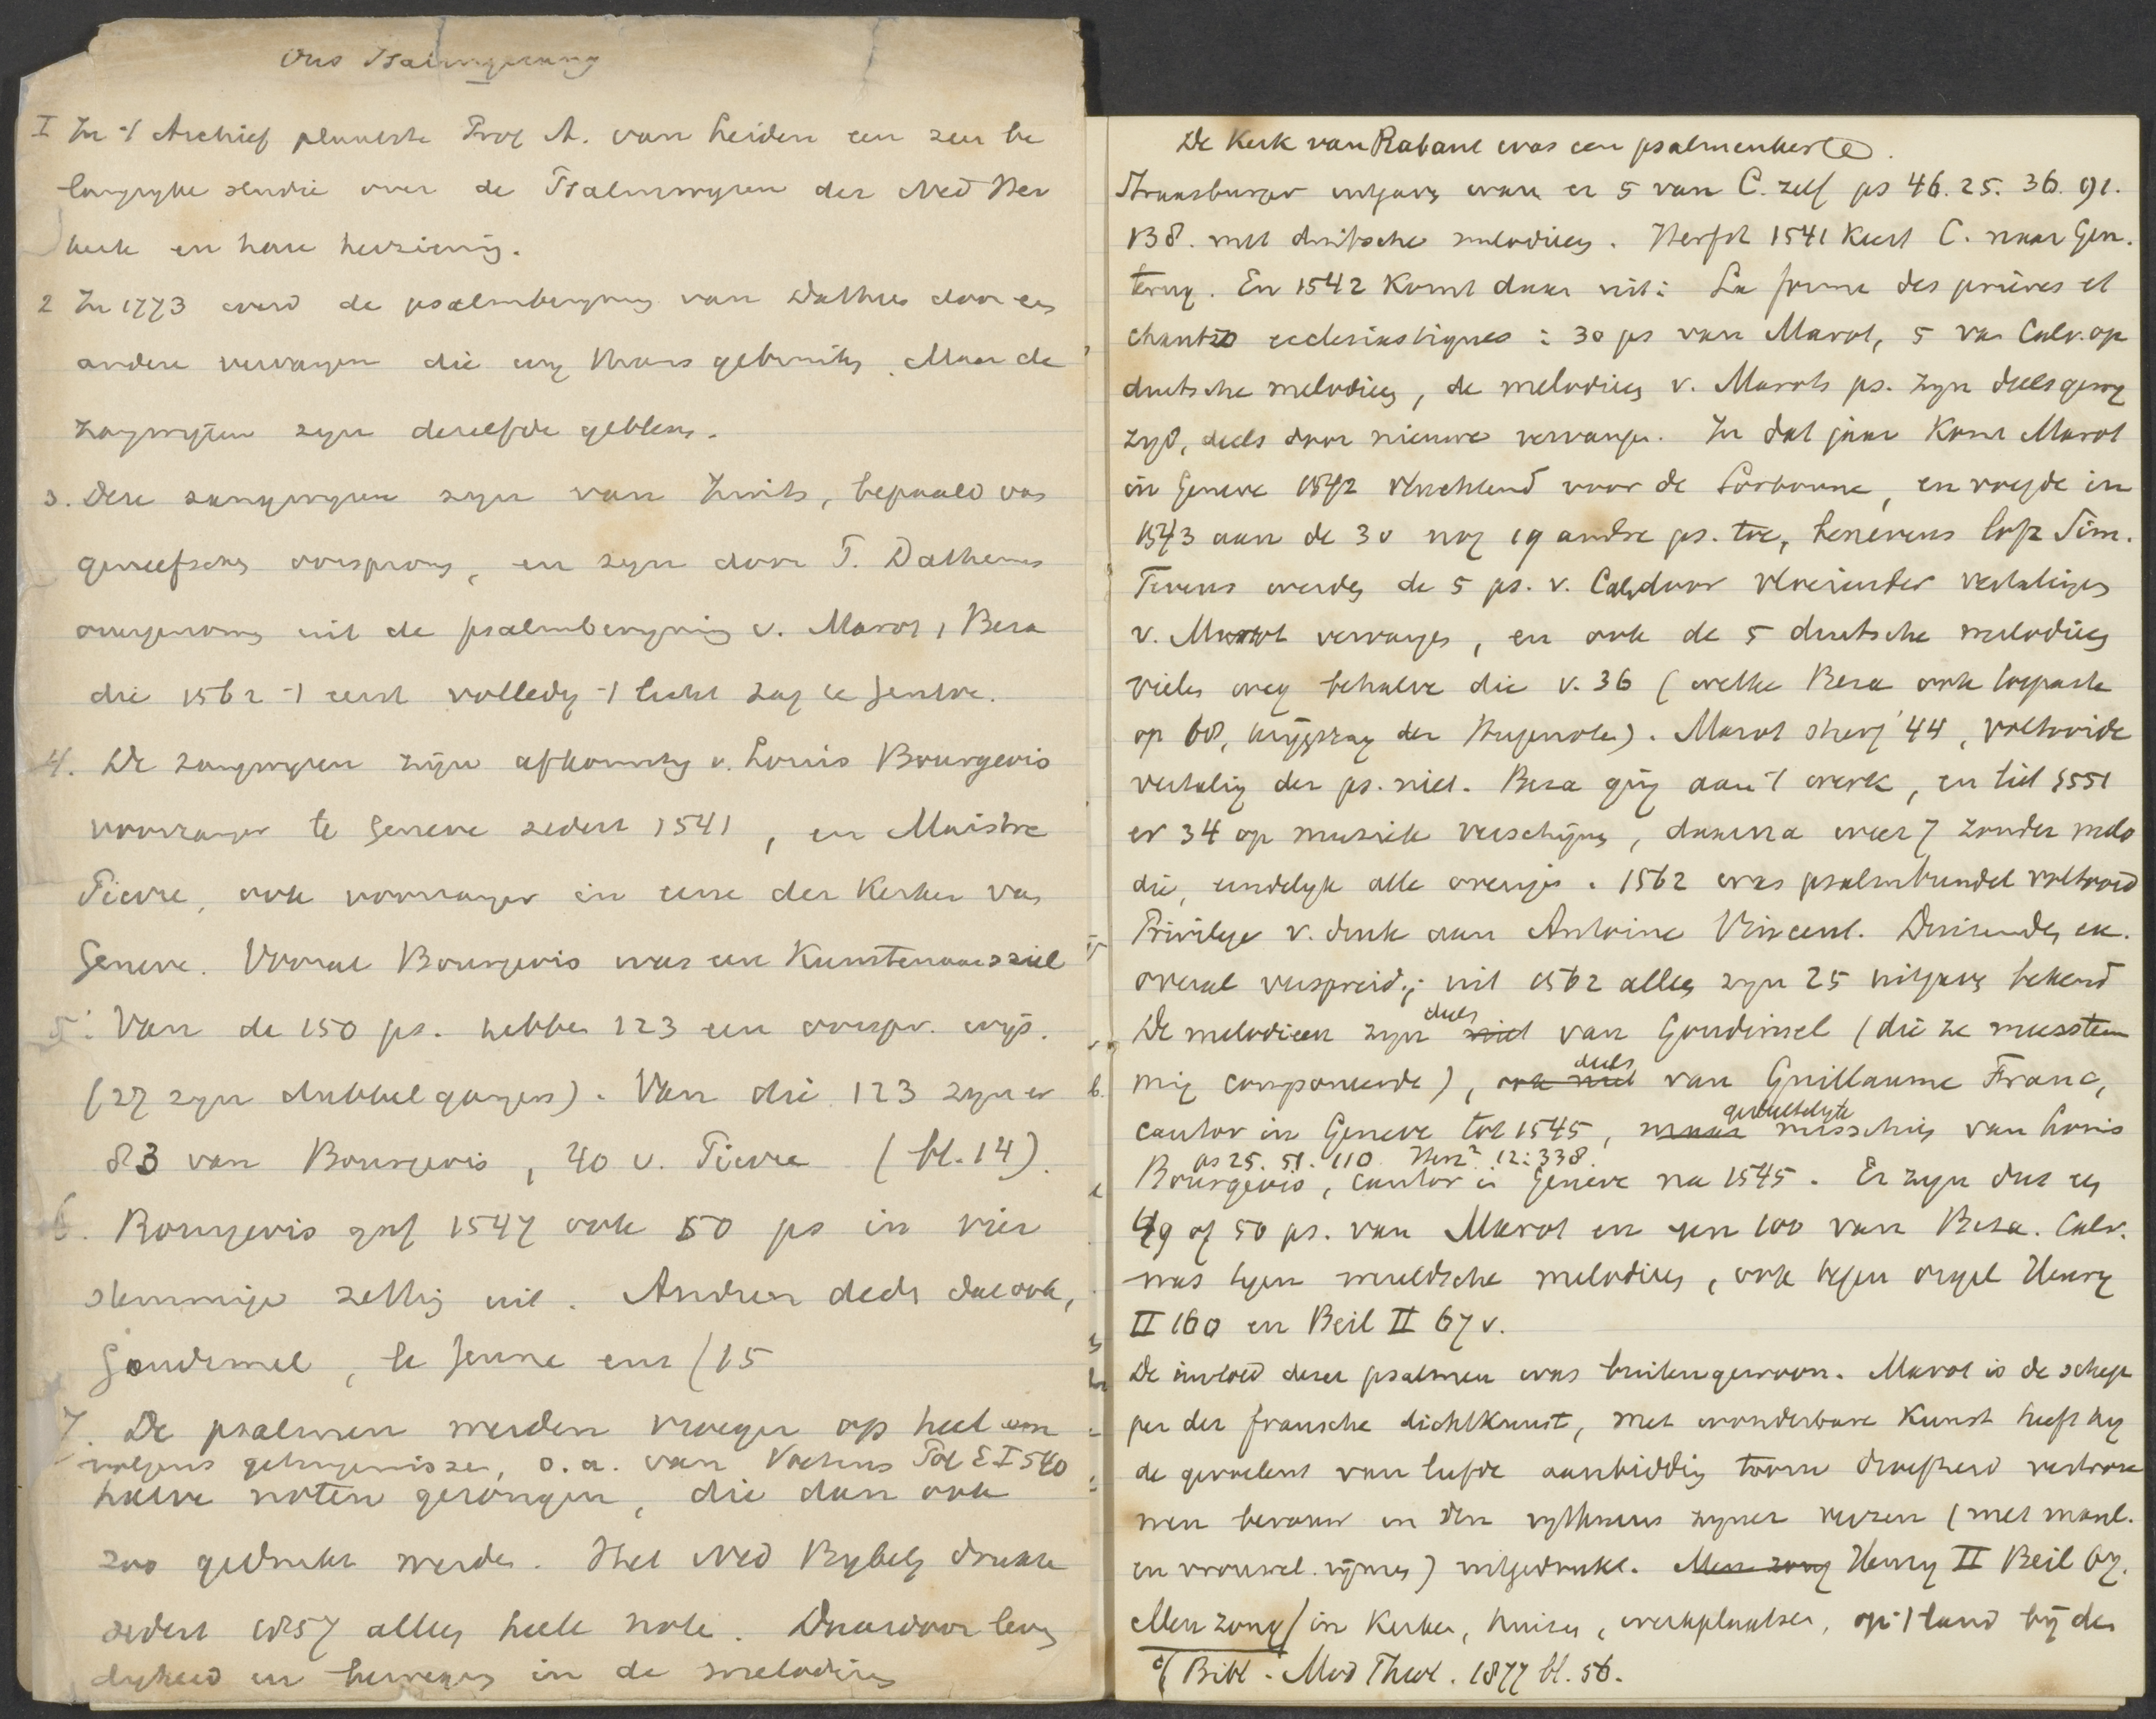 Ons Psalmgezang
I In 't Archief plaatste Prof A. van Leiden een zeer be
langrijke studie over de Psalmwijzen der Ned Her
kerk en hare herziening.
2 In 1773 werd de psalmberijming van Dathus door een
andere vervangen die wij thans gebruiken. Maar de
zangwijzen zijn dezelfde gebleven.
3. Deze zangwijzen zijn van Zwits, bepaald van
geneefschen oorsprong, en zijn door P. Dathenus
overgenomen uit de psalmberijming v. Marot, Beza
die 1562 't eerst volledig 't licht zag te Genève.
4. De zangwijzen zijn afkomstig v. Louis Bourgeois
voorzanger te Geneve zedert 1541, en Maistre
Pierre, ook voorzanger in eene der Kerken van
Geneve. Vooral Bourgeois was een Kunstenaarsziel
5. Van de 150 ps. hebben 123 een oorspr. wijs.
(27 zijn dubbelgangers). Van die 123 zijn er
83 van Bourgeois, 40 v. Pierre (bl. 14).
6. Bourgeois gaf 1547 ook 50 ps in vier
stemmige zetting uit. Anderen deden dat ook,
Goudimel, le Jeune enz (15
7. De psalmen werden vroeger op heel en
volgens getuigenissen, o.a. van Voetius Pol E I 540
halve noten gezongen, die dan ook
zoo gedrukt werden. Het Ned Bijbelg drukte
zedert 1857 alles heele note. Daardoor leven
digheid en beweging in de melodieen
De Kerk van Rabaut was een psalmenkerk.
Straasburger uitgave waren er 5 van C. zelf ps 46. 25. 36. 91.
138. met duitsche melodieen. Herfst 1541 keert C. naar Gen.
terug. En 1542 komt daar uit: La forme des prières et
chants ecclesiastiques: 30 ps van Marot, 5 van Calv. op
duitsche melodieen, de melodieen v. Marots ps. zijn deels gewij
zigd, deels door nieuwe vervangen. In dat jaar komt Marot
in Geneve 1542 vluchtend voor de Sorbonne, en voegde in
1543 aan de 30 nog 19 andre ps. toe, benevens lofz Sim.
Tevens werden de 5 ps. v. Calv door vloeiender vertalingen
v. Marot vervangen, en ook de 5 duitsche melodieen
vielen weg behalve die v. 36 (welke Beza ook toepaste
op 68, krijgszang der Hugenoten). Marot stierf '44, voltooide
vertaling der ps. niet. Beza ging aan 't werk, en liet 1551
er 34 op muziek verschijnen, daarna weer 7 zonder melo
die, eindelijk alle overige. 1562 was psalmbundel voltooid
Privilege v. druk aan Antoine Vincent. Duizenden ex.
overal verspreid; uit 1562 alleen zijn 25 uitgaven bekend
De melodieen zijn deels niet van Goudimel (die ze meerstem
mig componeerde), ook niet deels van Guillaume Franc,
cantor in Geneve tot 1545, maar gedeeltelijk misschien van Louis
ps 25. 51. 110. Herz² 12:338.
Bourgeois, cantor in Geneve na 1545. Er zijn dus een
49 of 50 ps. van Marot en een 100 van Beza. Calv.
was tegen wereldsche melodieen, ook tegen orgel Henry
II 160 en Beil II 67 v.
De invloed dezer psalmen was buitengewoon. Marot is de schep
per der fransche dichtkunst, met wonderbare kunst heeft hij
de gevoelens van liefde aanbidding toorn droefheid vertrou
wen berouw in den rythmus zijner verzen (met manl.
en vrouwel. rijmen) uitgedrukt. Men zong Henry II Beil 67.
Men zong in Kerken, huizen, werkplaatsen, op 't land bij den
cf Bibl. Mod Theol. 1877 bl. 56.